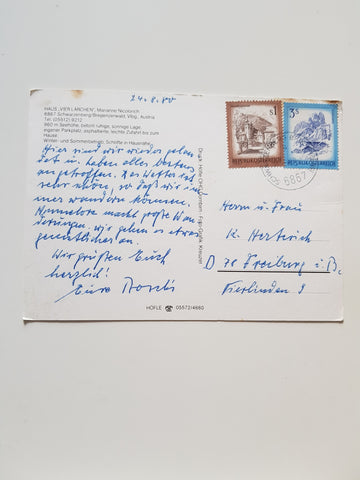 24.8.80
HAUS „VIER LÄRCHEN", Marianne Nicolovich
6867 Schwarzenberg/Bregenzerwald, Vlbg., Austria
Tel. (05512) 9212
960 m Seehöhe, extrem ruhige, sonnige Lage,
eigener Parkplatz, asphaltierte, leichte Zufahrt bis zum
Hause
Winter- und Sommerbetrieb, Schilifte in Hausnähe
Hier sind wir wieder gelan
det u. haben alles bestens
angetroffen. Das Wetter ist
sehr schön, so daß wir im
mer wandern können.
Hannelore macht große Wan
derungen, wir gehen es etwas
gemütlicher an.
Wir grüßen Euch
herzlich!
Eure
HÖFLE ☎ 05572/4660
Druck: Höfle Offset Dornbirn
S1
REPUBLIK ÖSTERREICH
3S
REPUBLIK ÖSTERREICH
6867
Herrn u. Frau
K. Herterich
D 78 Freiburg i. B.
Fierlinden 9